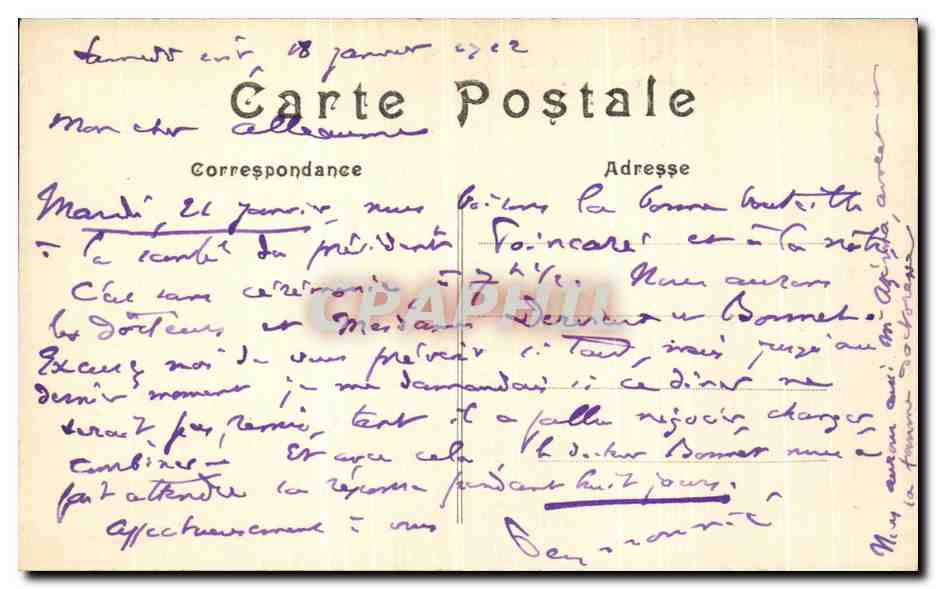 Samedi soir, 18 janvier
Carte Postale
Mon cher Alleaume
Correspondance
Adresse
Mardi, 21 janvier, nous boirons la bonne bouteille
à la santé du président Poincaré et à la nôtre
C'est sans cérémonie à 7 h 1/2. Nous aurons
les docteurs et Mesdames et Bonnet.
Excusez moi de vous prévenir si tard, mais jusqu'au
dernier moment je me demandais si ce dîner ne
serait pas remis, tant il a fallu négocier, changer
combiner — Et avec cela, le docteur Bonnet nous a
fait attendre sa réponse pendant huit jours.
affectueusement à vous
Nous aurons aussi Mr avocat et
sa femme doctoresse
CPAPHIL